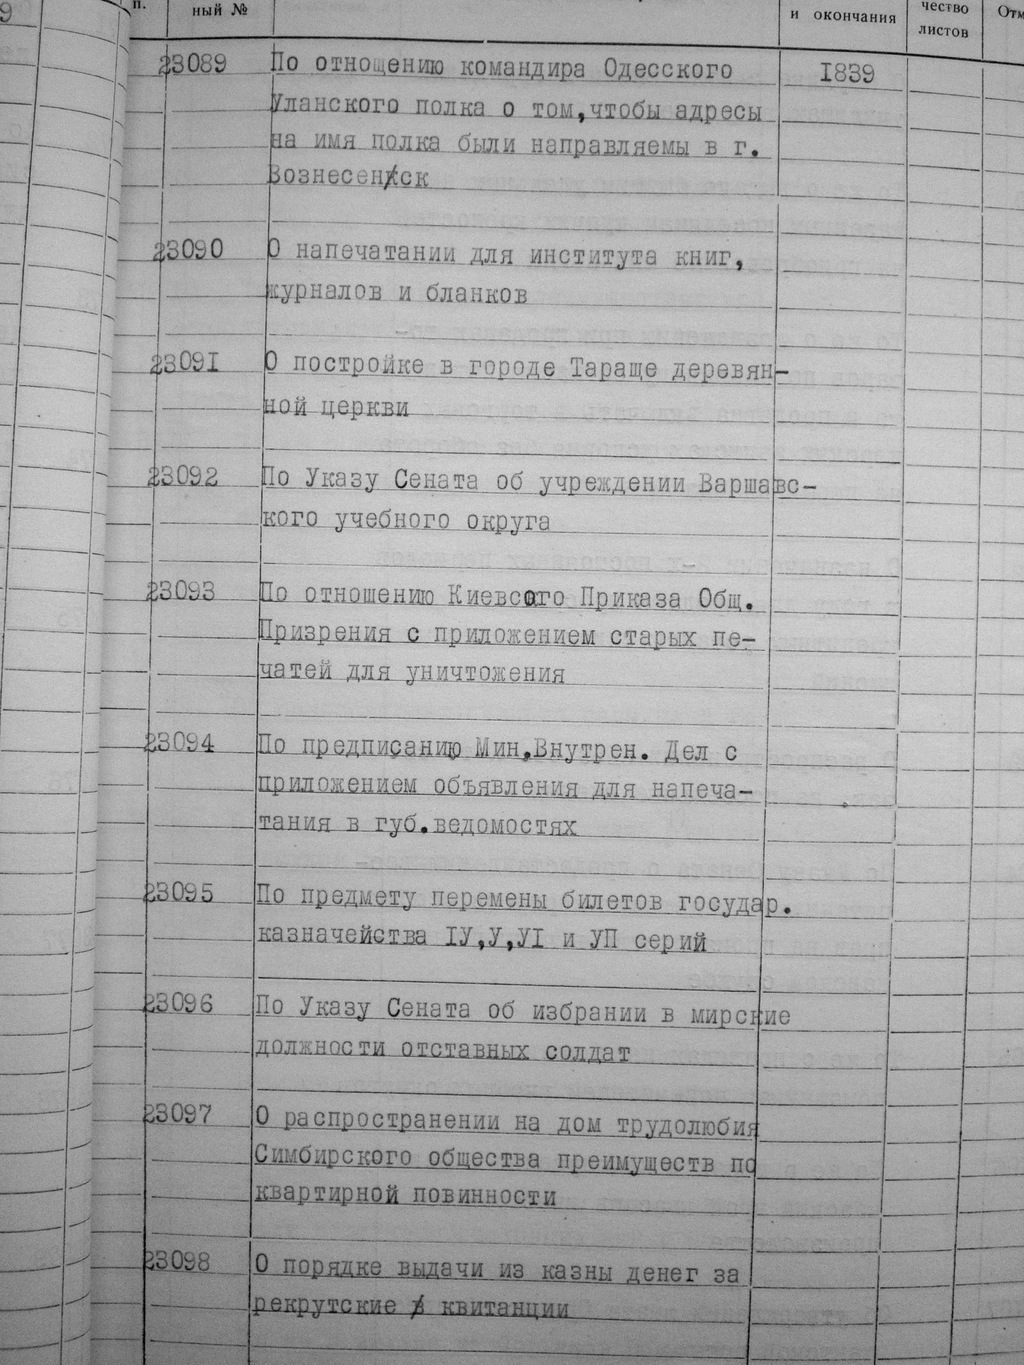 9
п.
ный №
и окончания
чество
листов
Отм
23089 По отнощению командира Одесского 1839
Уланского полка о том,чтобы адресы
на имя полка были направляемы в г.
Вознесенск
23090 О напечатании для института книг,
журналов и бланков
23091 О постройке в городе Тараще деревян-
ной церкви
23092 По Указу Сената об учреждении Варшавс-
кого учебного округа
23093 По отношению Киевсого Приказа Общ.
Призрения с приложением старых пе-
чатей для уничтожения
23094 По предписанию Мин.Внутрен. Дел с
приложением объявления для напеча-
тания в губ.ведомостях
23095 По предмету перемены билетов государ.
казначейства IУ,У,УI и УП серий
23096 По Указу Сената об избрании в мирские
должности отставных солдат
23097 О распространении на дом трудолюбия
Симбирского общества преимуществ по
квартирной повинности
23098 О порядке выдачи из казны денег за
рекрутские квитанции